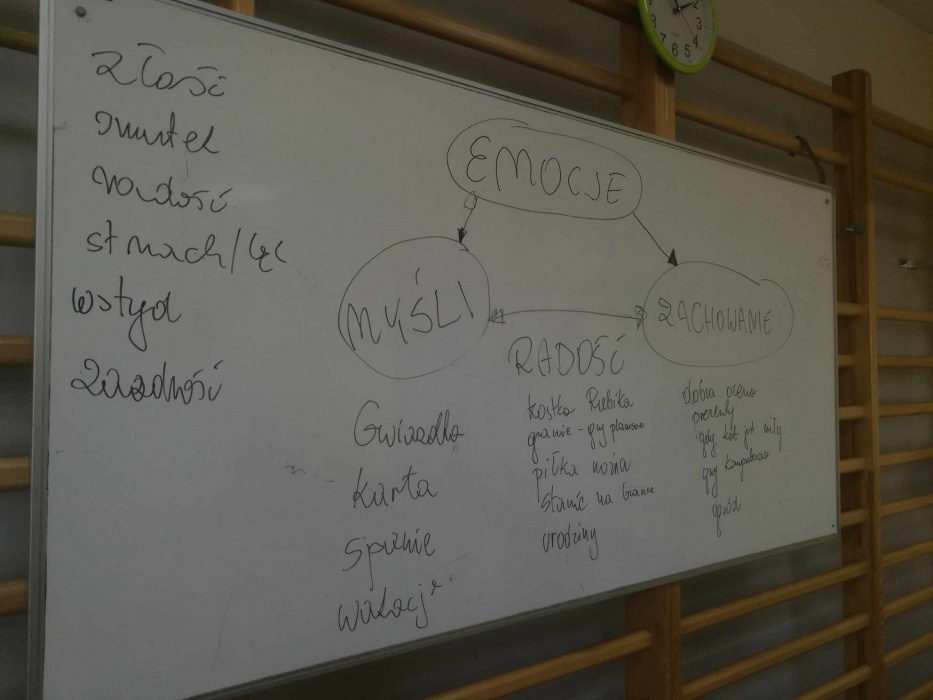 złość
smutek
radość
strach/lęk
wstyd
zazdrość
EMOCJE
MYŚLI
ZACHOWANIE
RADOŚĆ
Gwiazdka
karta
spanie
wakacje
kostka Rubika
granie - gry planszowe
piłka nożna
stanie na bramce
urodziny
dobra ocena
prezenty
gdy kot jest miły
gry komputerowe
3
4
5
6
7